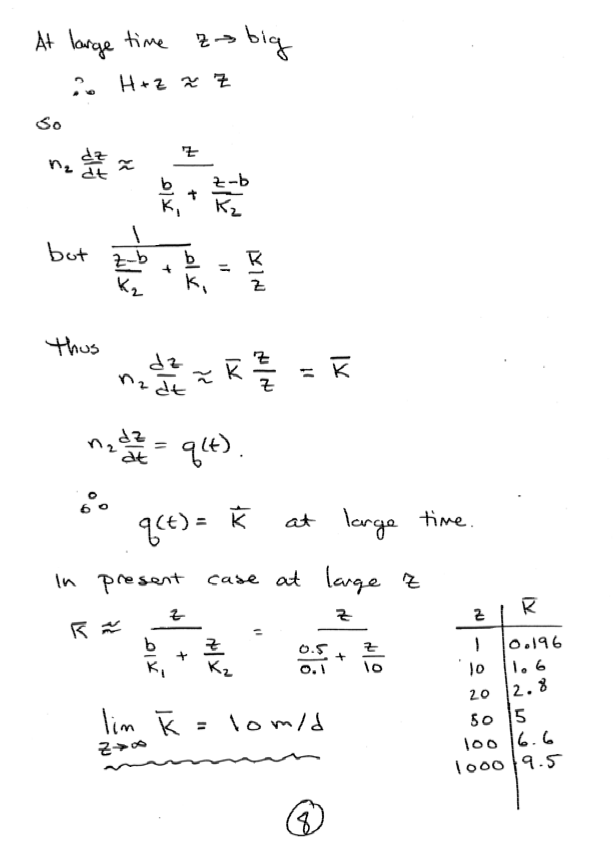 At large time z → big
∴ H+z ≈ z
so
n₂ dz/dt ≈ z / (b/K₁ + (z-b)/K₂)
but 1 / ((z-b)/K₂ + b/K₁) = K̅/z
thus
n₂ dz/dt ≈ K̅ z/z = K̅
n₂ dz/dt = q(t).
∴ q(t) = K̅ at large time.
In present case at large z
K̅ ≈ z / (b/K₁ + z/K₂) = z / (0.5/0.1 + z/10)
lim z→∞ K̅ = 10 m/d
z | K̅
1 | 0.196
10 | 1.6
20 | 2.8
50 | 5
100 | 6.6
1000 | 9.5
8